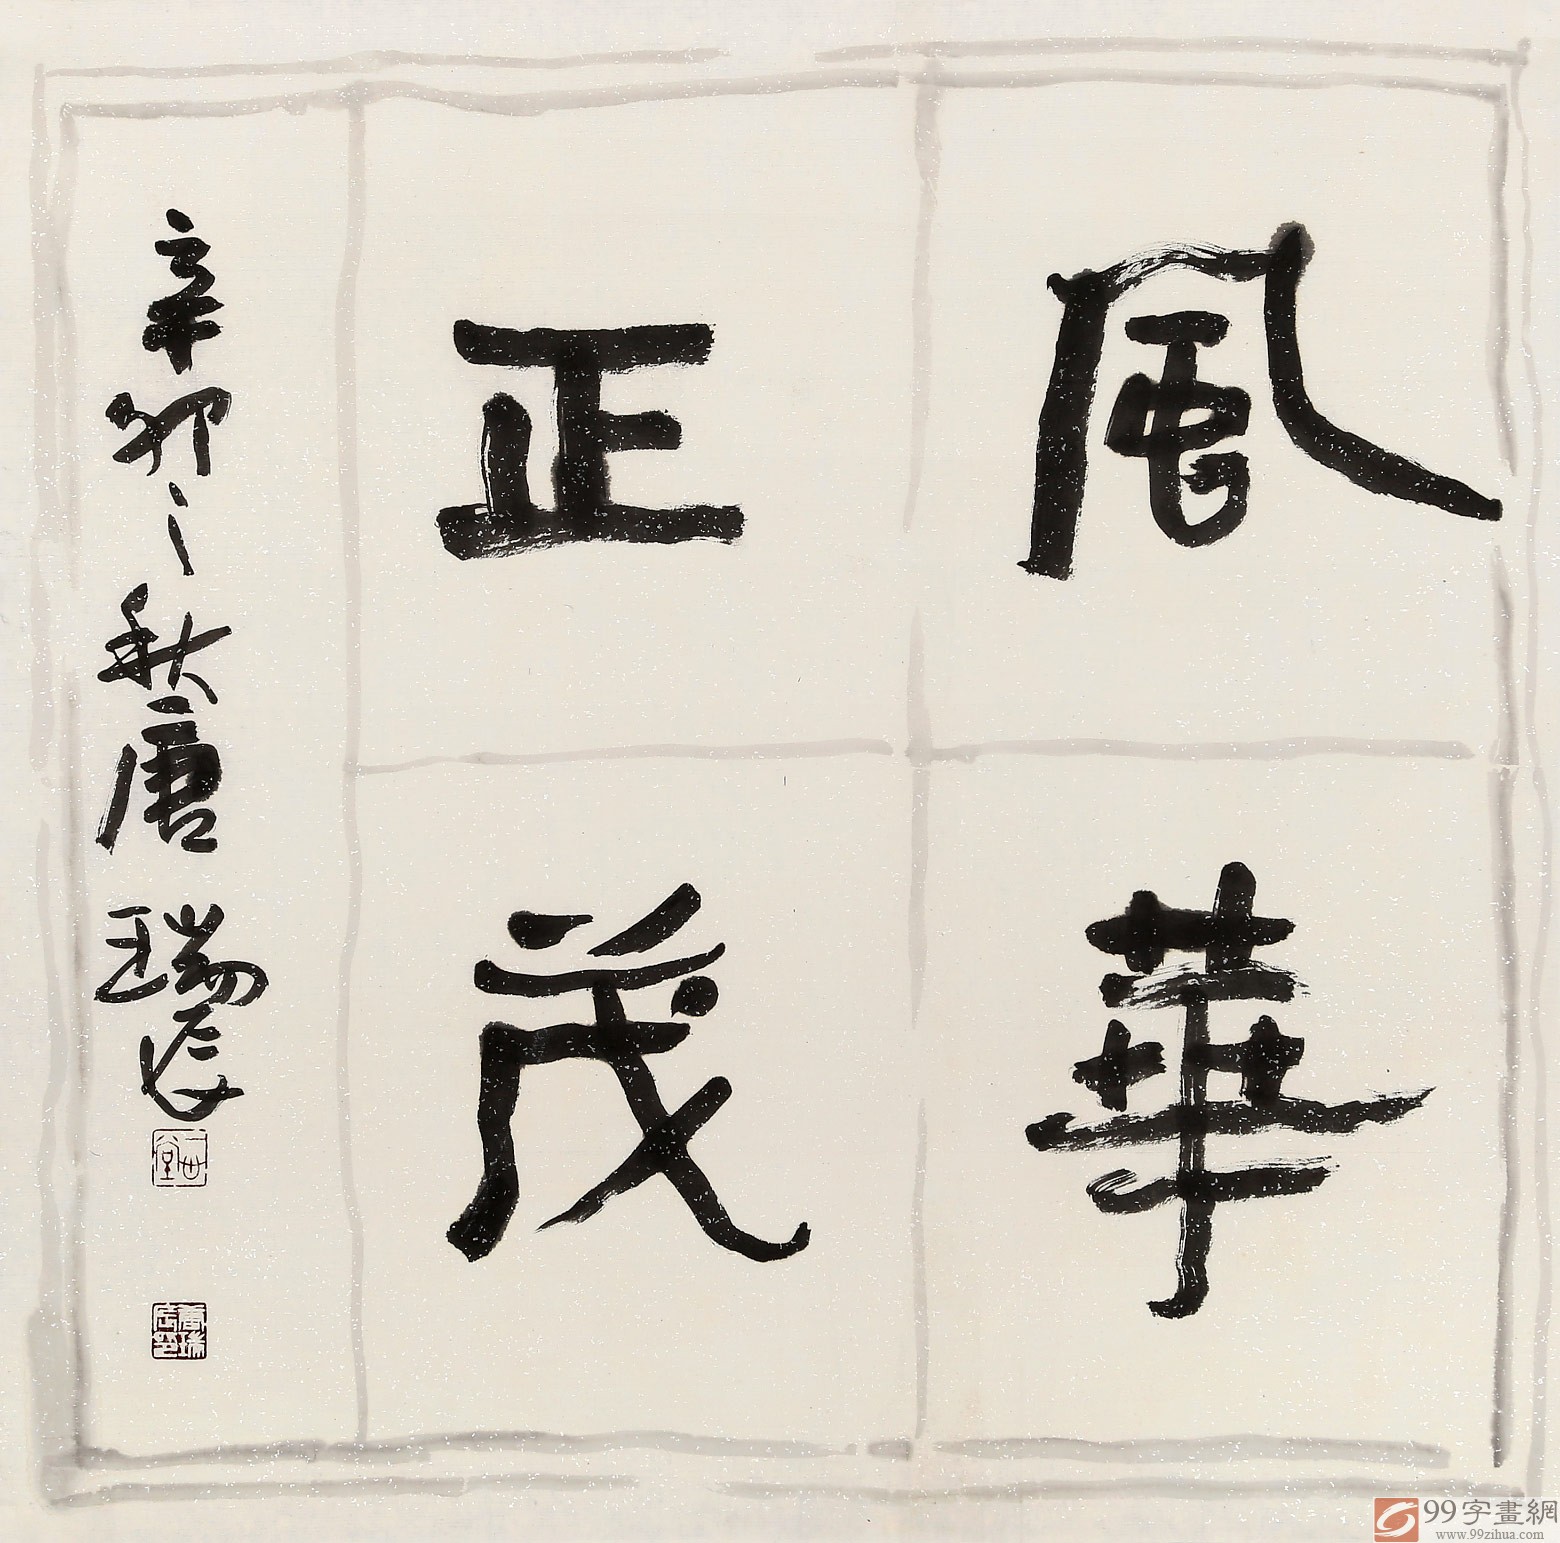 風華
正茂
辛卯之秋唐瑞辰
99字畫網
www.99zihua.com